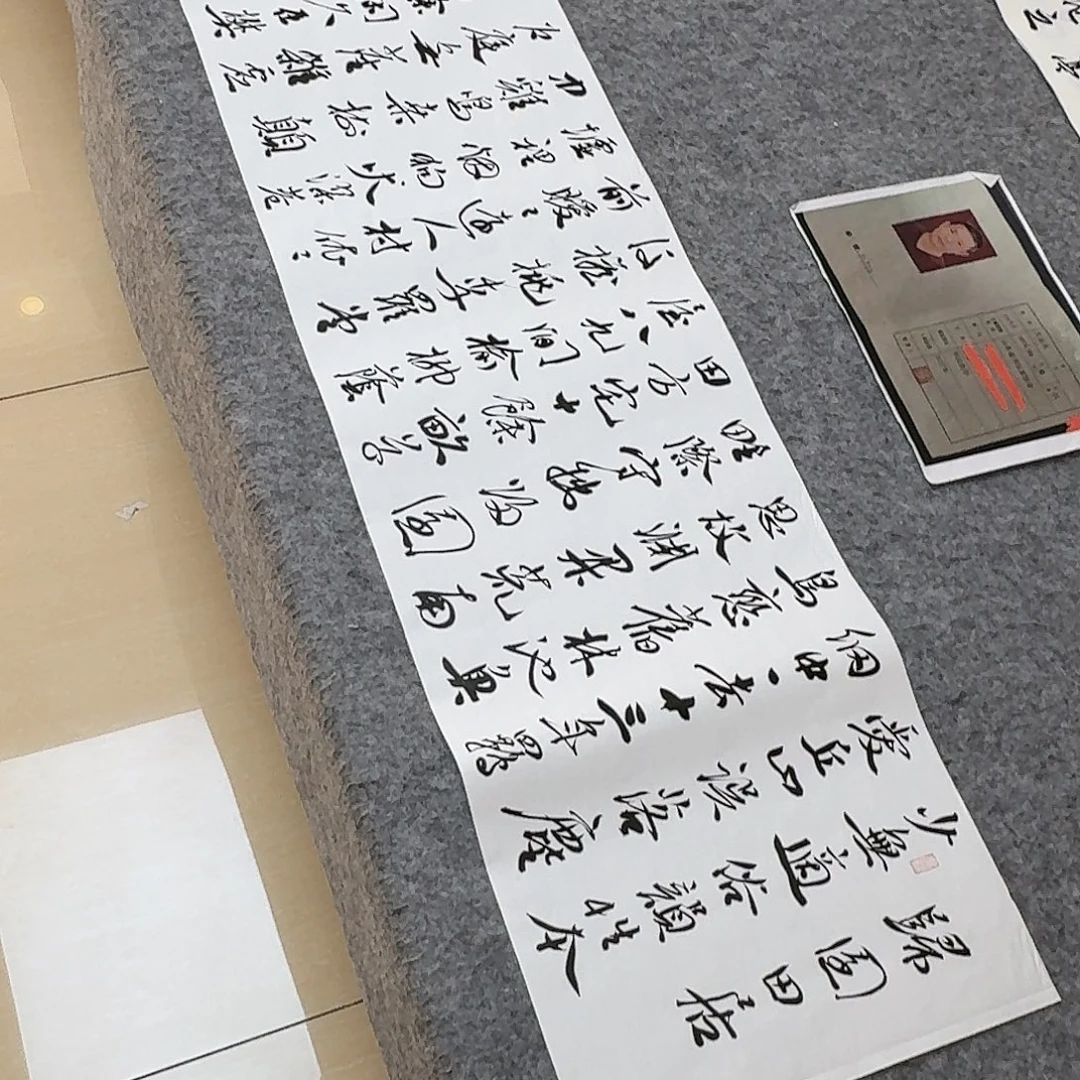 歸園田居
少無適俗韻性本
愛丘山誤落塵
網中一去十三年羈
鳥戀舊林池魚
思故淵開荒南
野際守拙歸園
田方宅十餘畝草
屋八九間榆柳蔭
後簷桃李羅堂
前曖〻遠人村依〻
墟裡煙狗吠深巷
中雞鳴桑樹顛
户庭無塵雜虛
餘閒久在樊